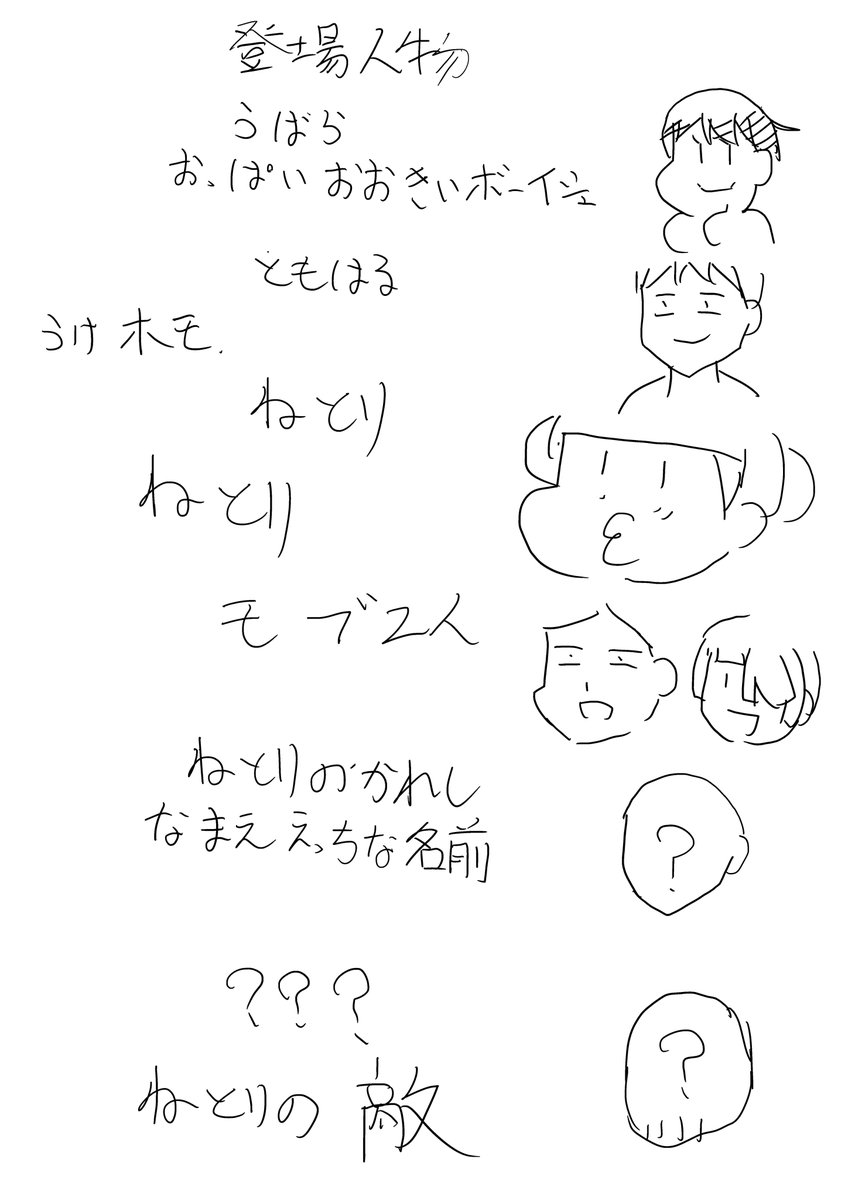 登場人物
うばら
おっぱいおおきいボーイジェ
ともはる
うけホモ.
ねとり
ねとり
モブ2人
ねとりのかれし
なまええっちな名前
?
???
ねとりの敵
?